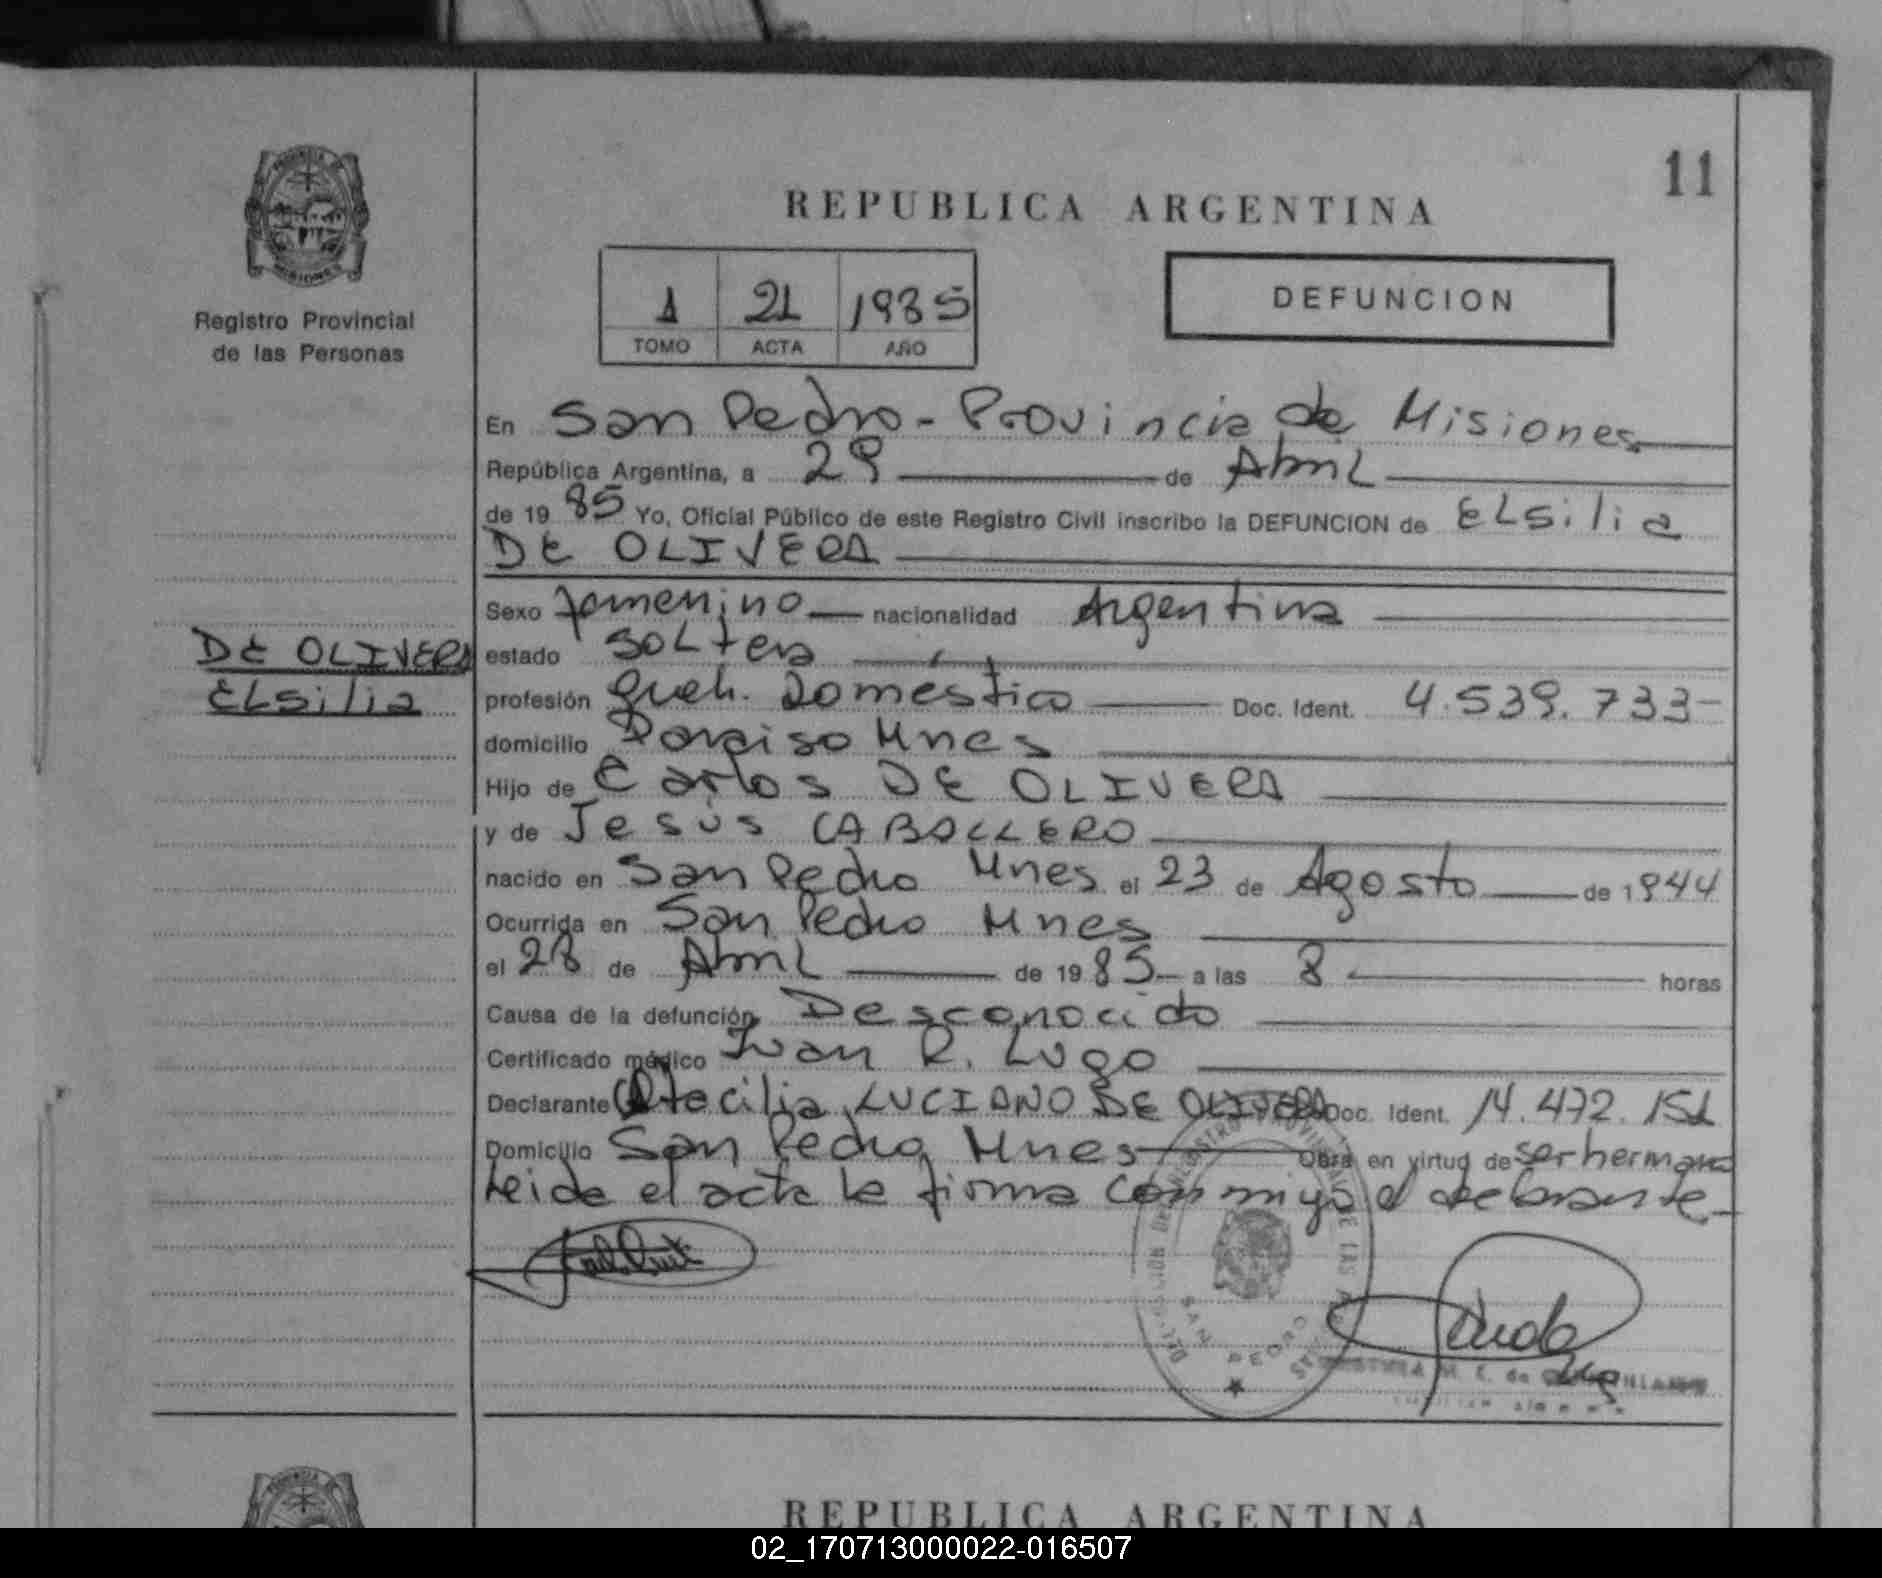 11
REPUBLICA ARGENTINA
Registro Provincial
de las Personas
1 21 1985
TOMO ACTA AÑO
DEFUNCION
En San Pedro - Provincia de Misiones
República Argentina, a 29 de Abril
de 19 85 Yo, Oficial Público de este Registro Civil inscribo la DEFUNCION de ELsilia
DE OLIVERA
DE OLIVERA
ELsilia
Sexo femenino nacionalidad Argentina
estado soltera
profesión Queh. Doméstico Doc. Ident. 4.539.733-
domicilio Paraiso Mnes
Hijo de Carlos DE OLIVERA
y de Jesús CABALLERO
nacido en San Pedro Mnes el 23 de Agosto de 1944
Ocurrida en San Pedro Mnes
el 28 de Abril de 1985 a las 8 horas
Causa de la defunción Desconocido
Certificado médico Juan R. Lugo
Declarante LUCIANO DE OLIVERA Doc. Ident. 14.472.151
Domicilio San Pedro Mnes Obra en virtud de ser hermano
Leida el acta la firma conmigo el declarante
SAN PEDRO
REPUBLICA ARGENTINA
02_170713000022-016507